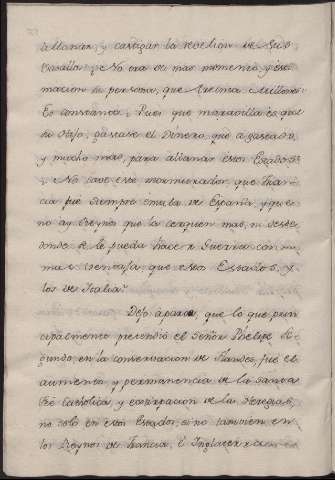 allanar, y castigar la rebelion de sus
Vasallos, No era de mas momento, y esti
macion su persona, que treinta Millones?
Es constante; Pues que maravilla es que
su hijo, gastase el Dinero, que a gastado,
y mucho mas, para allanar estos Estados?
No save este murmurador, que Fran
cia fue siempre emula de España, y que
no ay Reynos que la cerquen mas, ni desde
donde se le pueda hacer Guerra con
mas ventaja que estos Estados, y
los de Italia?
Dejo aparte, que lo que prin
cipalmente pretendio el Señor Phelipe Se
gundo, en la conservacion de Flandes, fue el
aumento, y permanencia de la Santa
Fée Catholica, y extirpacion de las Heregias,
no solo en estos Estados, si no tamvien en
los Reynos de Francia, è Inglaterra